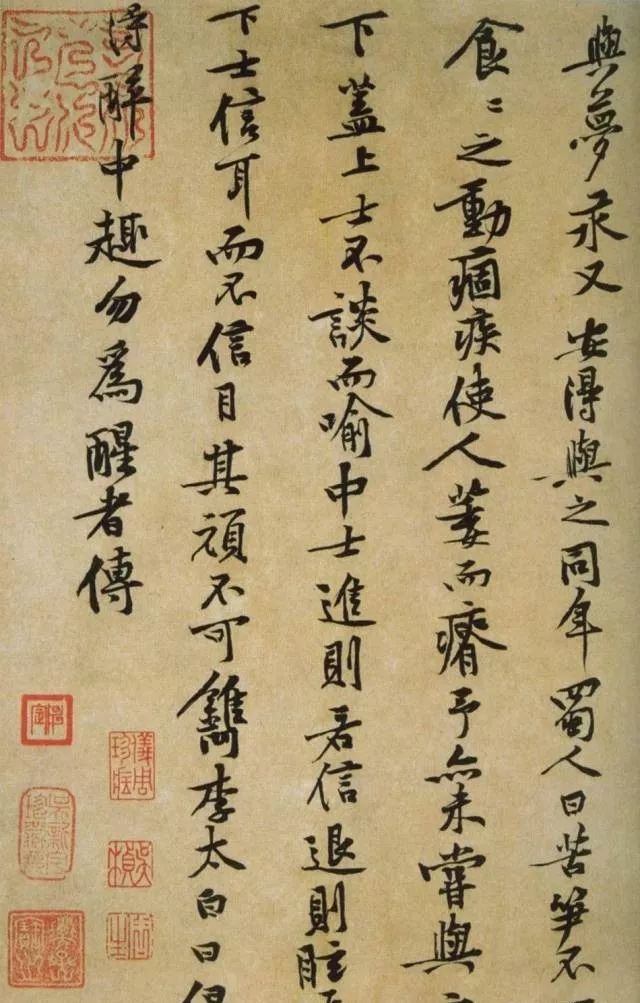 與夢汞又安得與之同年蜀人曰苦笋不
食〻之動痼疾使人萎而瘠予亦未嘗與
下蓋上士不談而喻中士進則若信退則眩
下士信耳而不信目其頑不可鐫李太白曰但
得醉中趣勿爲醒者傳
儀周珍藏